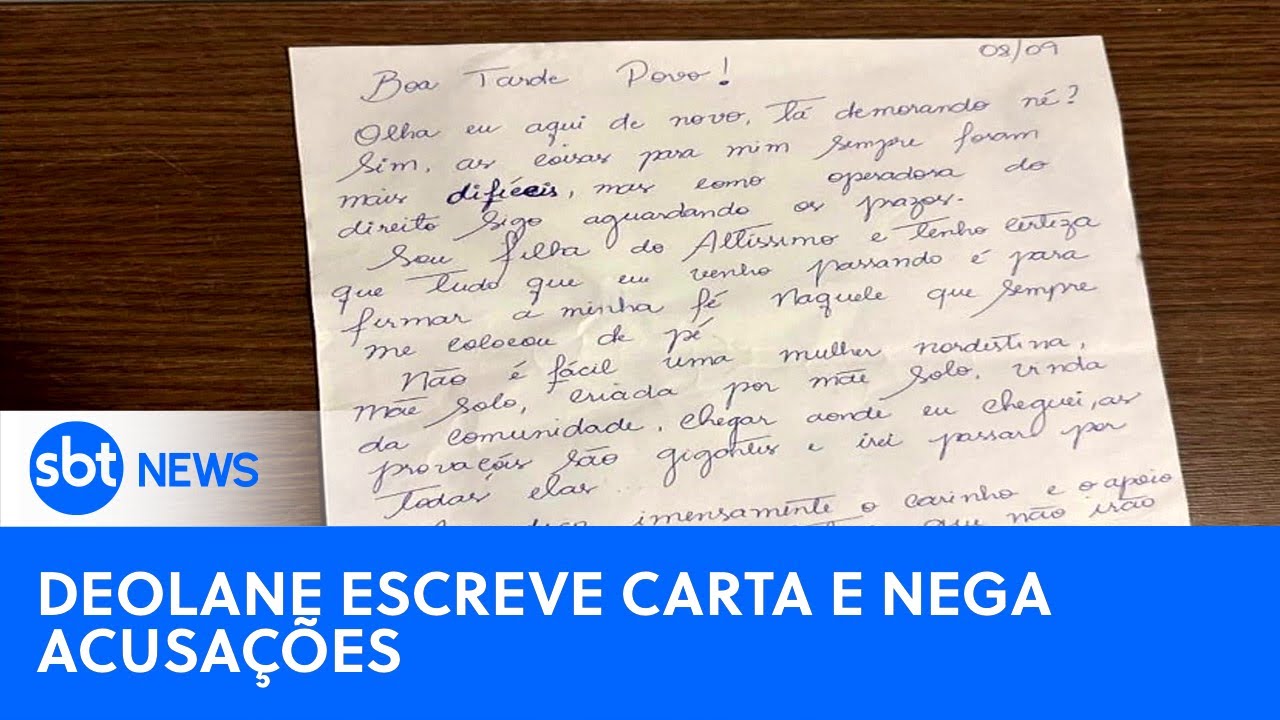 08/09
Boa Tarde Povo!
Olha eu aqui de novo, tá demorando né?
Sim, as coisas para mim sempre foram
mais difíceis, mas como operadora do
direito sigo aguardando os prazos.
Sou filha do Altíssimo e tenho certeza
que tudo que eu venho passando é para
firmar a minha fé Naquele que sempre
me colocou de pé
Não é fácil uma mulher nordestina,
mãe solo, criada por mãe solo, vinda
da comunidade, chegar aonde eu cheguei, as
provações são gigantes e irei passar por
todas elas...
imensamente o carinho e o apoio
que não irão
sbt NEWS
DEOLANE ESCREVE CARTA E NEGA
ACUSAÇÕES